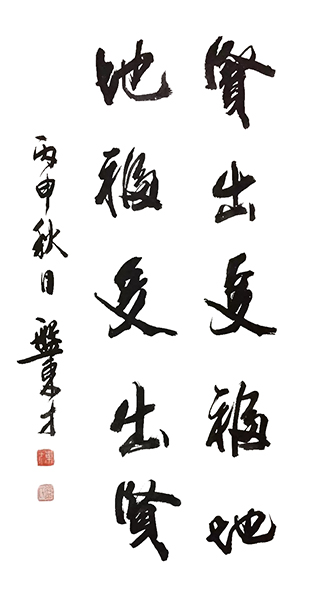 賢出多福地
地福多出賢
丙申秋日